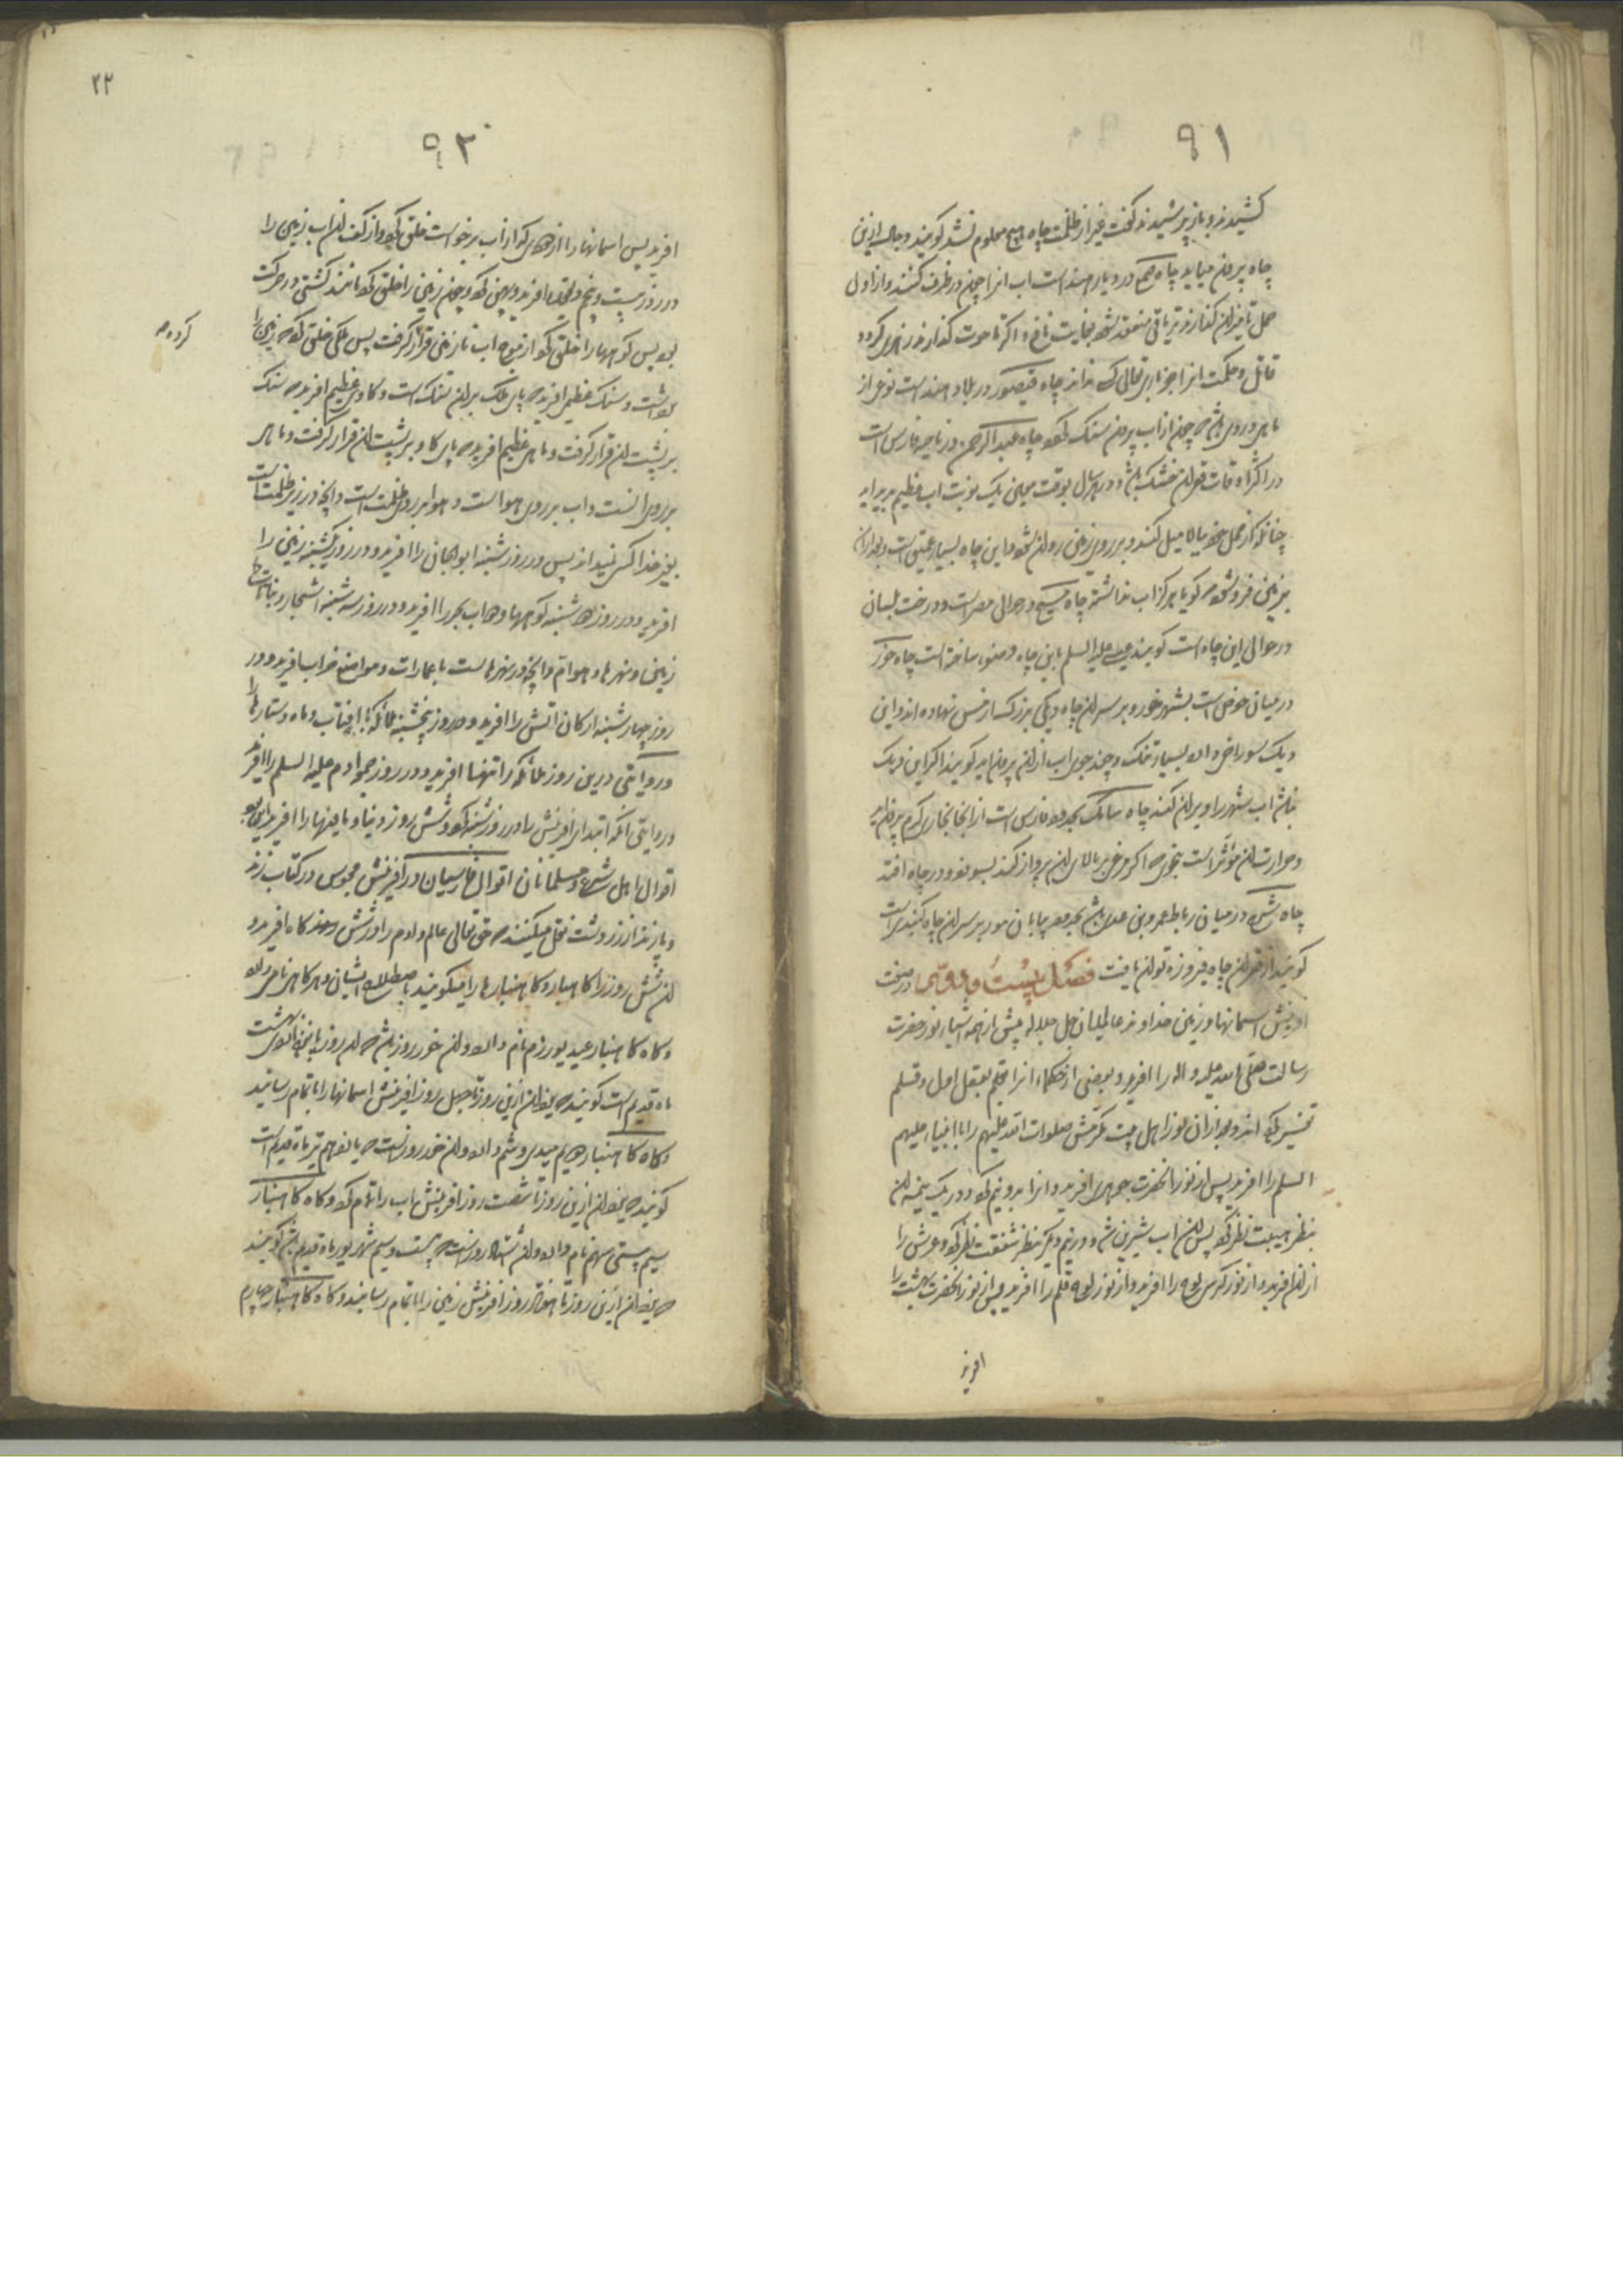 ۹۱
کشیدند و باز پرسیدند گفت غیر از ظلمت چاه هیچ معلوم نشد گویند وجاء ازین
چاه بیرون میاید چاه در دیار هند است اب انرا چون در ظرف کنند و از اول
حمل تا میزان گذارند تریاقی منعقد شود بغایت نافع و اگر تا حوت گذارند زهری گردد
قاتل و حکمت انرا جز باری تعالی کسی نداند چاه قیصور در بلاد هند است نوعی از
ماهی در وی باشد چون از اب بیرون سنگ شود چاه عبد الرحمن در ناحیه فارس است
در اکثر اوقات قعر ان خشک باشد و در هر سال بوقت معین یک نوبت اب عظیم پدید اید
چنانکه از محل خود ببالا میل کند و بر روی زمین روان شود و این چاه بسیار عمیق است و بعد از ان
بزمین فرو شود که گویا هرگز اب نداشته چاه مسیح در حوالی مصر است و درخت بلسان
در حوالی این چاه است گویند عیسی علیه السلم باین چاه وضو ساخته است چاه خور
در میان حوض است بشهر خور و بر سر ان چاه دیگی بزرگ از مس نهاده اند و این
دیک سوراخی دارد بسیار تنک و چند جوی اب از ان بیرون اید گویند اگر این دیک
نباشد اب شهر را ویران کند چاه سابک بحدود فارس است از انجا بخاری گرم بیرون اید
و حرارت ان مؤثر است بنحوی که اگر مرغی بر بالای ان پرواز کند بسوزد و در چاه افتد
چاه در میان رباط عمرو بن باشد بحدود بیابان مور بر سر ان چاه گنبدی است
گویند از قعر ان چاه فیروزه توان یافت فصل بیست و دوم در صفت
افرینش اسمانها و زمین خداوند عالمیان جل جلاله پیش از همه اشیاء نور حضرت
رسالت صلی الله علیه و اله را افرید و بعضی از حکماء انرا بعقل اول و قلم
تفسیر کرده اند و بعد از ان نور اهل بیت مکرمش صلوات الله علیهم را با انبیاء علیهم
السلم را افرید پس از نور انحضرت جوهری افرید و انرا بدو نیم کرد و در یک نیمه ان
بنظر هیبت نظر کرد پس ان اب شیرین شد و در نیم دیگر بنظر شفقت نظر کرد و عرش را
از ان افرید و از نور کرسی لوح را افرید و از نور لوح قلم را افرید و پس از نور انحضرت بهشت را
افرید
۲۲
۹۲
افرید پس اسمانها را از دهدی که از اب برخواست خلق کرد و از کف ان اب زمین را
در روز بیست و پنجم ذیقعده افرید و پهن کرد و چون زمین را خلق کرد مانند کشتی در حرکت
بود پس کوهها را خلق کرد از موج اب تا زمین قرار گرفت پس ملکی خلق کرد که زمین را
برداشت و سنک عظیم افرید که پای ملک بران سنک است و گاوی عظیم افرید که سنک
بر پشت ان قرار گرفت و ماهی عظیم افرید که پای گاو بر پشت ان قرار گرفت و ماهی
بر روی ابست و اب بر روی هوا است و هوا بر روی ظلمت است و انچه در زیر ظلمت است
بغیر خدا کس نمیداند پس در روز شنبه ابو الجان را افرید و در روز یکشنبه زمین را
افرید و در روز دوشنبه کوهها و اب بحر را افرید و در روز سه شنبه اشجار و نباتات
زمین و نهرها و هوام و انچه در نهرهاست با عمارات و مواضع خراب افرید و در
روز چهارشنبه ارکان اتش را افرید و در روز پنجشنبه ملائکه با افتاب و ماه و ستارها را
و روایتی درین روز ملائکه را تنها افرید و در روز جمعه ادم علیه السلم را افرید
و روایتی انکه ابتدای افرینش را در روز شنبه کرد و شش روز دنیا و مافیها را افرید این بود
اقوال اهل شرع و مسلمانان اقوال فارسیان در افرینش مجوس در کتاب زند
و پازند از زردشت نقل میکنند که حق تعالی عالم و ادم را در شش گاه افرید و
ان شش روز را گاهنبار و گاهنبارها را میگویند باصطلاح ایشان و هر گاهی نامی دارد
و گاه گاهنبار عید یورزم نام دارد و ان خور روز باشد که ان روز پانزدهم اردی بهشت
ماه قدیم است گویند که یزدان ازین روز تا چهل روز افرینش اسمانها را باتمام رسانید
و گاه گاهنبار دویم میدی وشم دارد و ان خور روز است که یازدهم تیر ماه قدیم است
گویند که یزدان ازین روز تا شصت روز افرینش اب را تمام کرد و گاه گاهنبار
سیم پتی سهم نام دارد و ان اشتاد روز است که بیست و ششم شهریور ماه قدیم باشد گویند
که یزدان ازین روز تا هفتاد روز افرینش زمین را باتمام رسانید و گاه گاهنبار چهارم
کرد و که